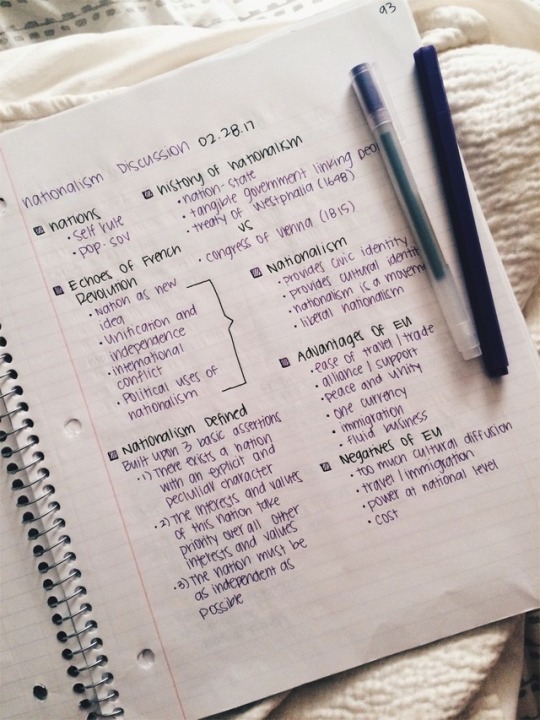 93
nationalism Discussion 02.28.17
nations
• self rule
• pop. sov
history of nationalism
• nation-state
• tangible government linking
• treaty of Westphalia (1648)
vs
• congress of vienna (1815)
Echoes of French
Revolution
• Nation as new
idea
• Unification and
independence
• international
conflict
• Political uses of
nationalism
Nationalism Defined
Built upon 3 basic assertions
• 1) There exists a nation
with an explicit and
pecluliar character
• 2) The interests and values
of this nation take
priority over all other
interests and values
• 3) The nation must be
as independent as
possible
Nationalism
• provides civic identity
• provides cultural
• nationalism is a
• liberal nationalism
Advantages of EU
• ease of travel / trade
• alliance / support
• peace and unity
• one currency
• immigration
• fluid business
Negatives of EU
• too much cultural diffusion
• travel / immigration
• power at national level
• cost